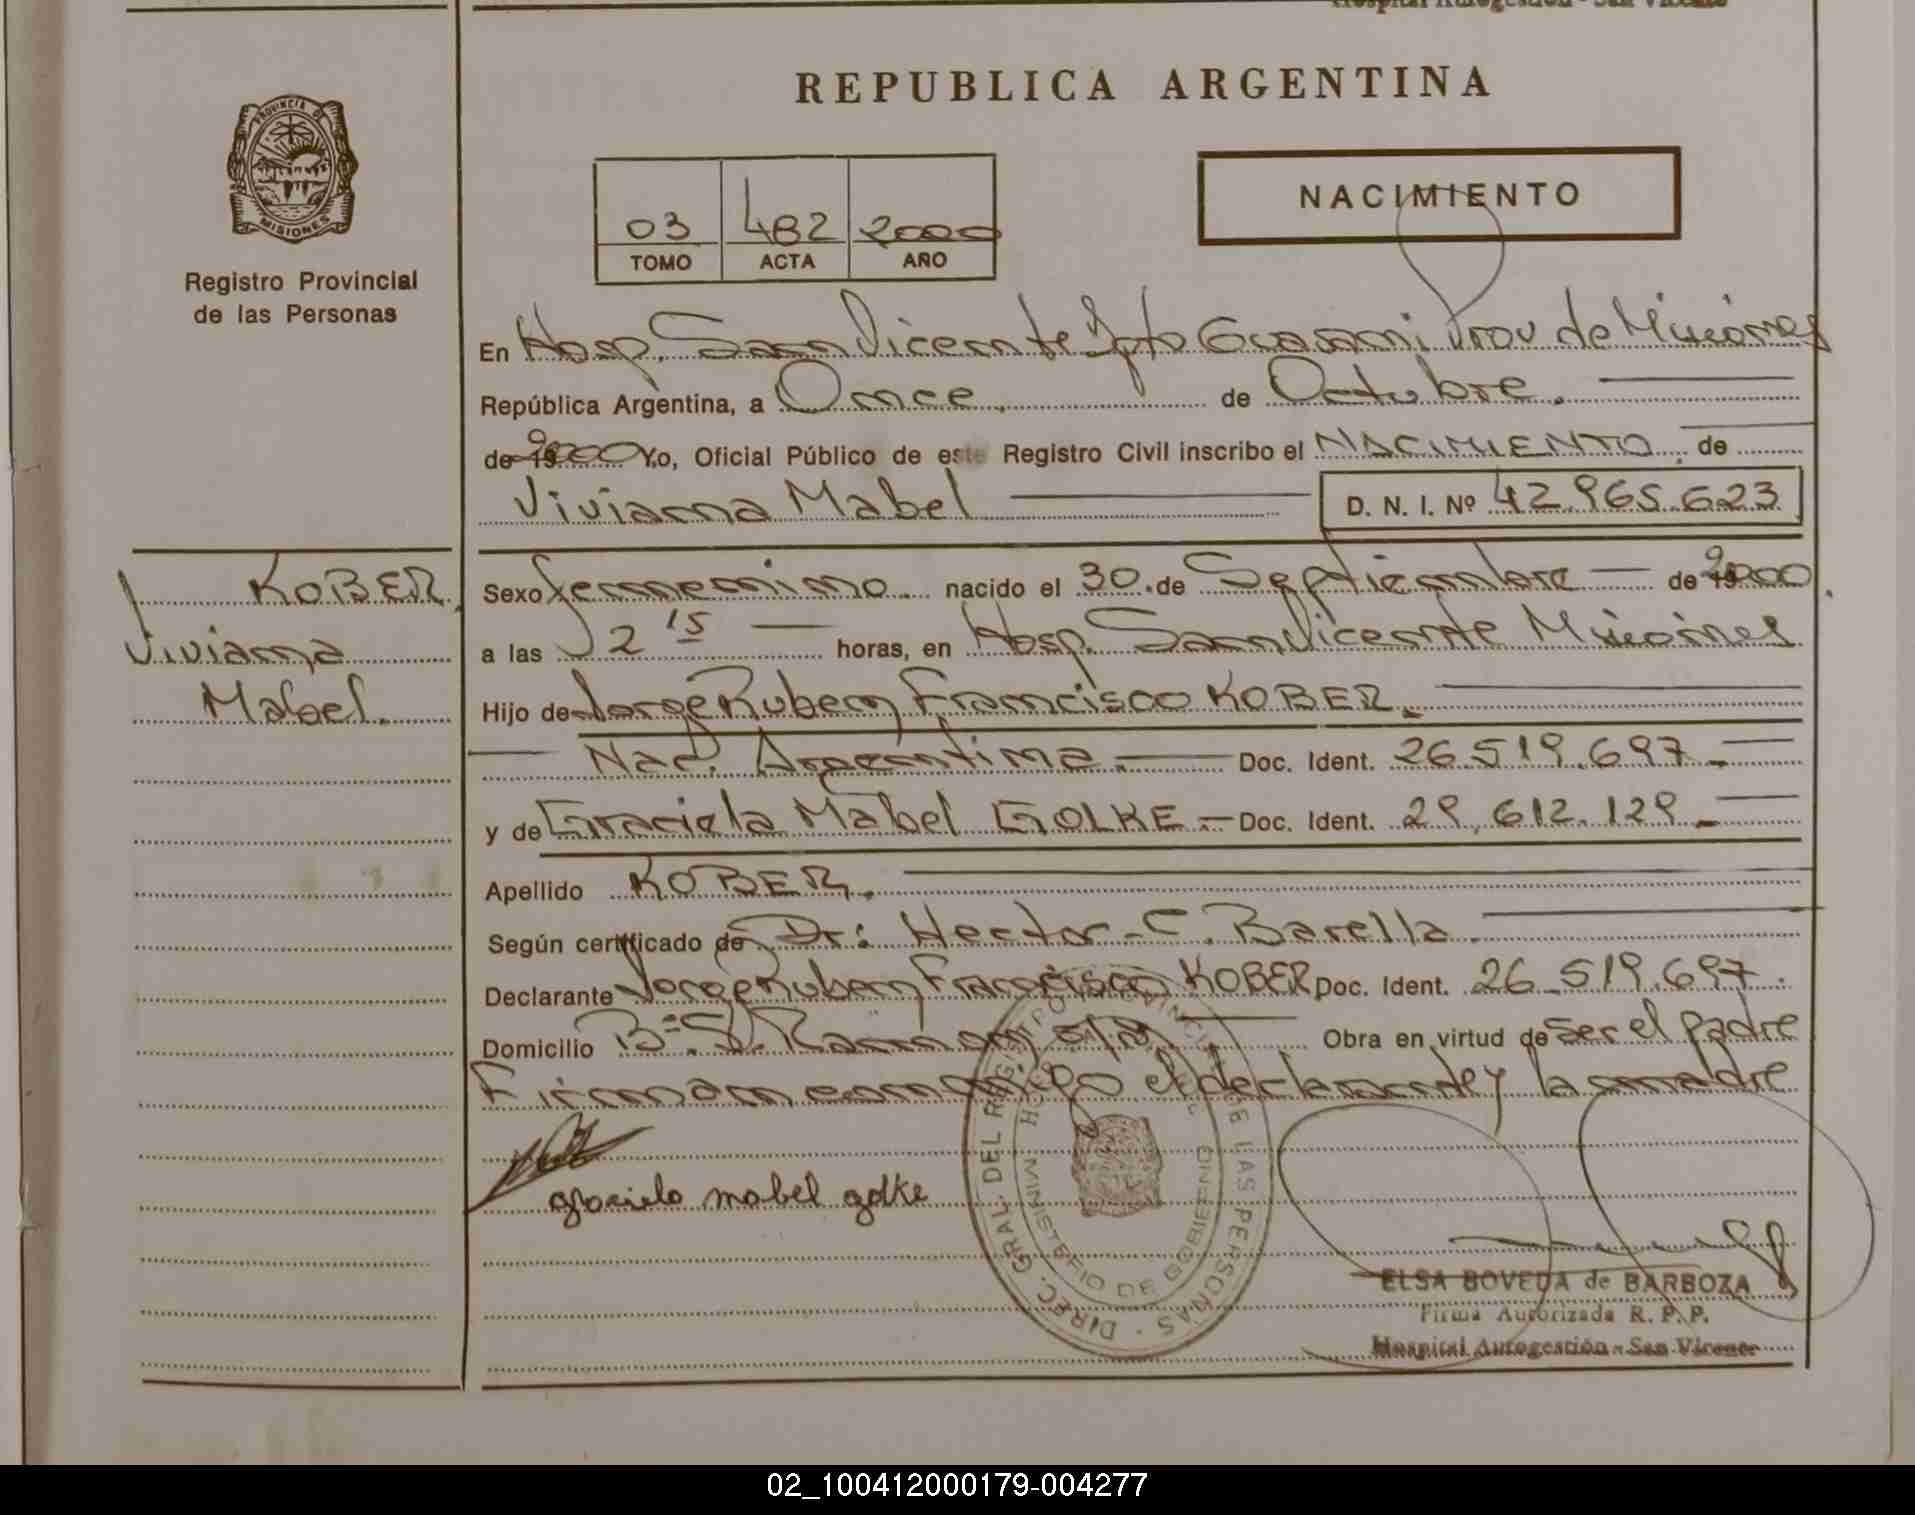 Hospital Autogestión - San Vicente
REPUBLICA ARGENTINA
PROVINCIA DE
MISIONES
Registro Provincial
de las Personas
03 482 2000
TOMO ACTA AÑO
NACIMIENTO
En Hosp. San Vicente Dpto Guaraní Prov de Misiones
República Argentina, a Once. de Octubre.
de 2000 Yo, Oficial Público de este Registro Civil inscribo el NACIMIENTO. de
Viviana Mabel D. N. I. Nº 42.965.623
KOBER
Viviana
Mabel.
Sexo femenino. nacido el 30. de Septiembre de 2000.
a las 2 15 horas, en Hosp. San Vicente Misiones
Hijo de Jorge Ruben Francisco KOBER.
Nac. Argentina. Doc. Ident. 26.519.697.
y de Graciela Mabel GOLKE. Doc. Ident. 29.612.129.
Apellido KOBER.
Según certificado de Dr: Hector C. Barella.
Declarante Jorge Ruben Francisco KOBER Doc. Ident. 26.519.697.
Domicilio Bº S. Ramon s/n Obra en virtud de Ser el padre
Firman conmigo el declarante y la madre
graciela mabel golke
DIREC. GRAL. DEL REGISTRO PROVINCIAL DE LAS PERSONAS
MINISTERIO DE GOBIERNO
ELSA BOVEDA de BARBOZA
Firma Autorizada R. P. P.
Hospital Autogestión - San Vicente
02_100412000179-004277